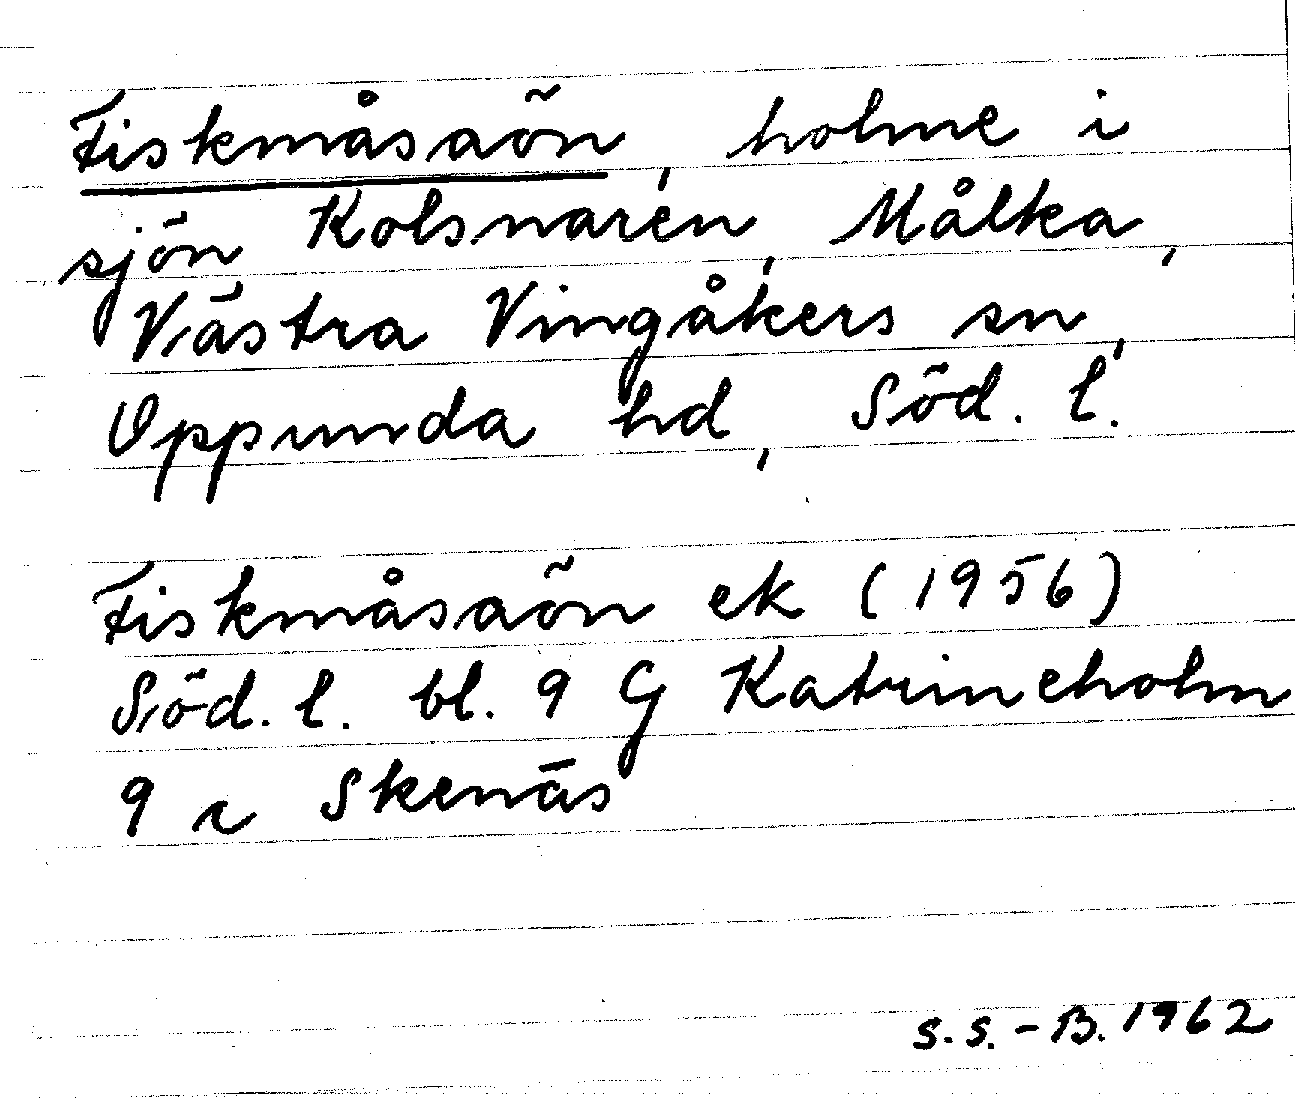 Fiskmåsaön, holme i
sjön Kolsnaren, Målka,
Västra Vingåkers sn,
Oppunda hd, Söd. l.
Fiskmåsaön ek (1956)
Söd. l. bl. 9 G Katrineholm
9 c Skenäs
S.S.-B. 1962